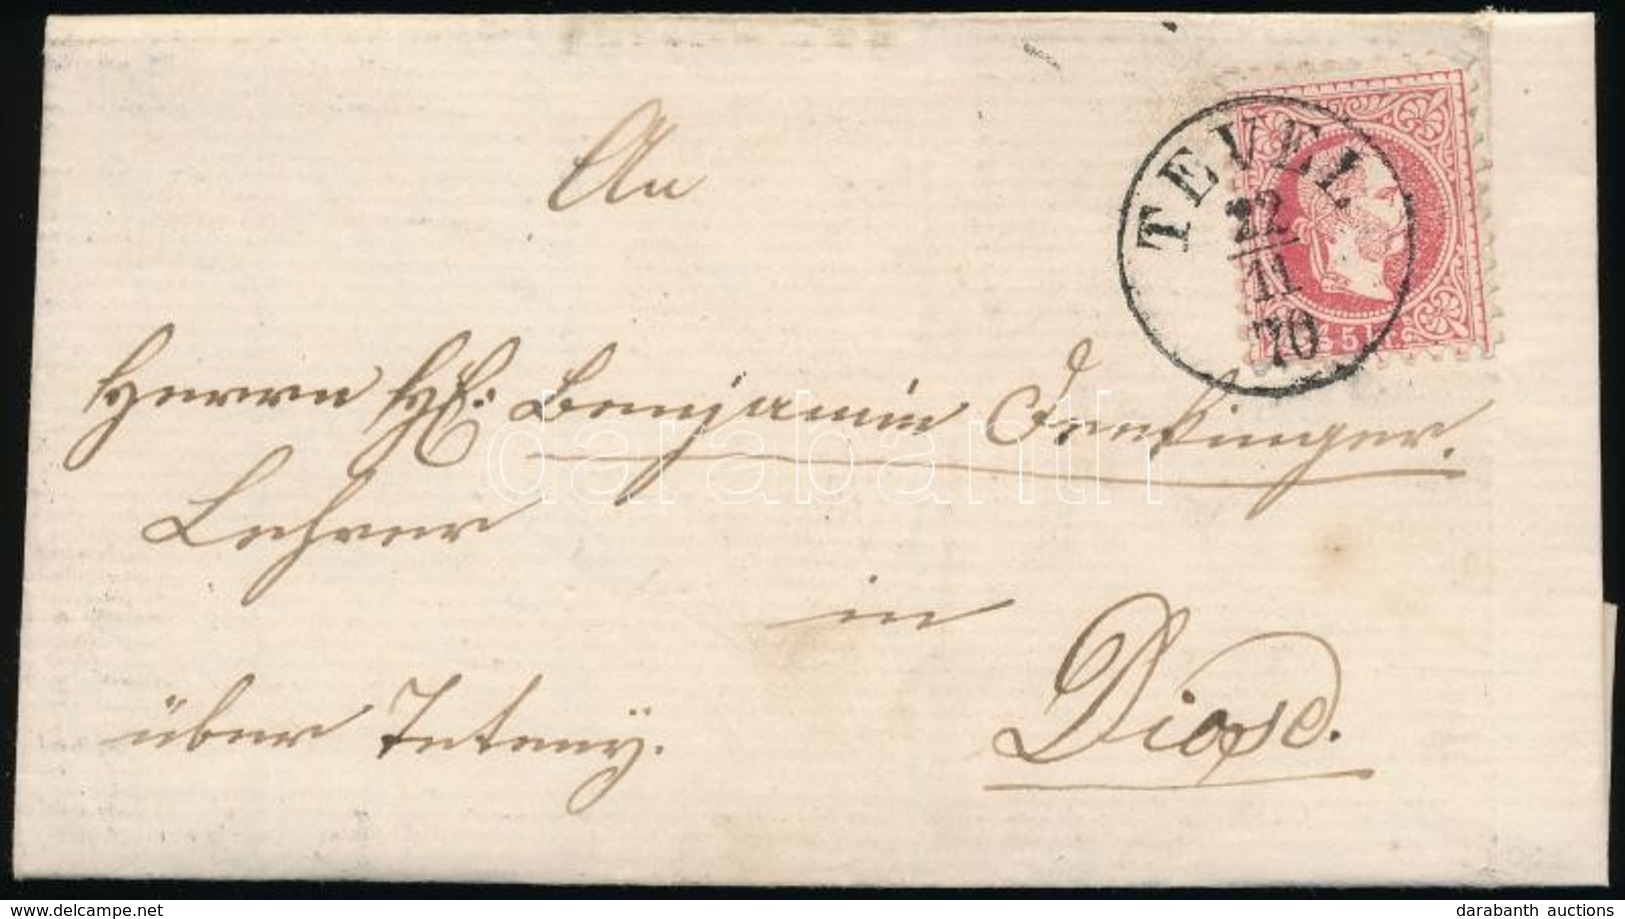 An
TEVEL
22
11
70
5 kr.
Herrn H: Benjamin
Lehrer
in
über Teteny.
Diosd.
darabanth
delcampe.net
darabanth auctions